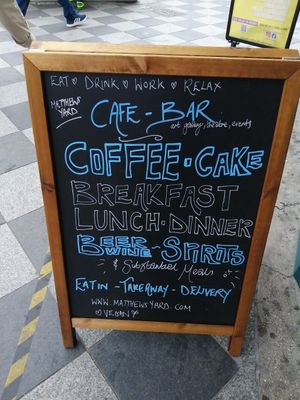 EAT ♡ DRINK ♡ WORK ♡ RELAX
MATTHEWS YARD
CAFE - BAR
art gallery, theatre, events
COFFEE · CAKE
BREAKFAST
LUNCH · DINNER
BEER WINE - SPIRITS
& Substantial Meals
EAT IN - TAKEAWAY - DELIVERY
WWW.MATTHEWSYARD.COM
♡ VEGAN ♡